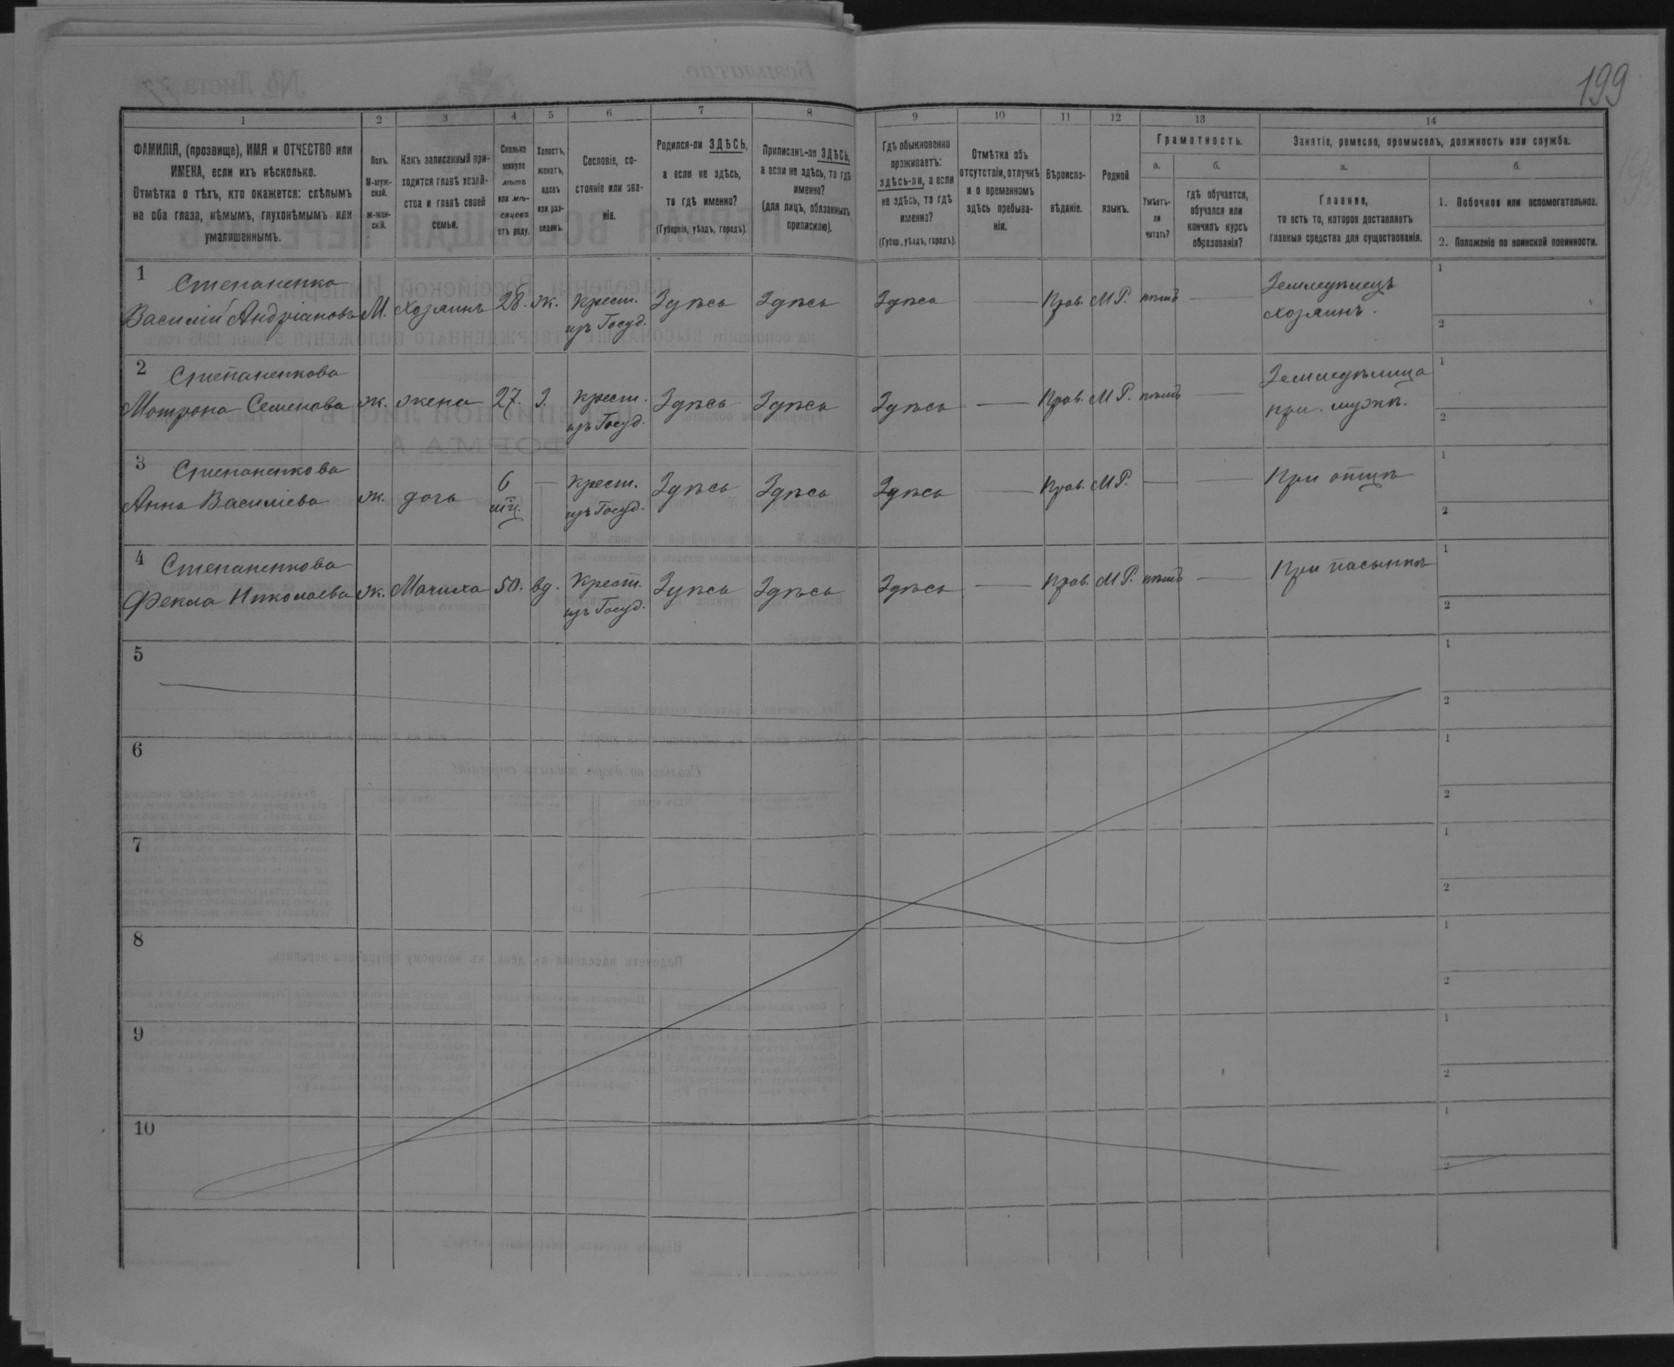 199
1 2 3 4 5 6 7 8 9 10 11 12 13 14
ФАМИЛІЯ, (прозвище), ИМЯ и ОТЧЕСТВО или
ИМЕНА, если ихъ нѣсколько.
Отмѣтка о тѣхъ, кто окажется: слѣпымъ
на оба глаза, нѣмымъ, глухонѣмымъ или
умалишеннымъ.
Полъ.
М-муж-
ской.
ж-жен-
скій.
Какъ записанный при-
ходится главѣ хозяй-
ства и главѣ своей
семьи.
Сколько
минуло
лѣтъ
или мѣ-
сяцевъ
отъ роду.
Холостъ,
женатъ,
вдовъ
или раз-
веденъ.
Сословіе, со-
стояніе или зва-
ніе.
Родился-ли ЗДѢСЬ,
а если не здѣсь,
то гдѣ именно?
(Губернія, уѣздъ, городъ).
Приписанъ-ли ЗДѢСЬ,
а если не здѣсь, то гдѣ
именно?
(для лицъ, обязанныхъ
припискою).
Гдѣ обыкновенно
проживаетъ:
здѣсь-ли, а если
не здѣсь, то гдѣ
именно?
(Губер., уѣздъ, городъ).
Отмѣтка объ
отсутствіи, отлучкѣ
и о временномъ
здѣсь пребыва-
ніи.
Вѣроиспо-
вѣданіе.
Родной
языкъ.
Грамотность.
а.
Умѣетъ-
ли
читать?
б.
гдѣ обучается,
обучался или
кончилъ курсъ
образованія?
Занятіе, ремесло, промыселъ, должность или служба.
а.
Главное,
то есть то, которое доставляетъ
главныя средства для существованія.
б.
1. Побочное или вспомогательное.
2. Положеніе по воинской повинности.
1 Степаненко
Василій Андріановъ М. Хозяинъ 28. ж. Крест. Здѣсь Здѣсь Здѣсь — Прав. М.Р. нѣтъ — Земледѣлецъ
изъ Госуд. хозяинъ.
1
2
2 Степаненкова
Мотрона Семенова ж. жена 27. З. Крест. Здѣсь Здѣсь Здѣсь — Прав. М.Р. нѣтъ — Земледѣлица
изъ Госуд. при мужѣ.
1
2
3 Степаненкова
Анна Василіева ж. дочь 6 — Крест. Здѣсь Здѣсь Здѣсь — Прав. М.Р. — — При отцѣ
изъ Госуд.
1
2
4 Степаненкова
Фекла Николаева ж. Мачиха 50. вд. Крест. Здѣсь Здѣсь Здѣсь — Прав. М.Р. нѣтъ — При пасынкѣ
изъ Госуд.
1
2
5
1
2
6
1
2
7
1
2
8
1
2
9
1
2
10
1
2